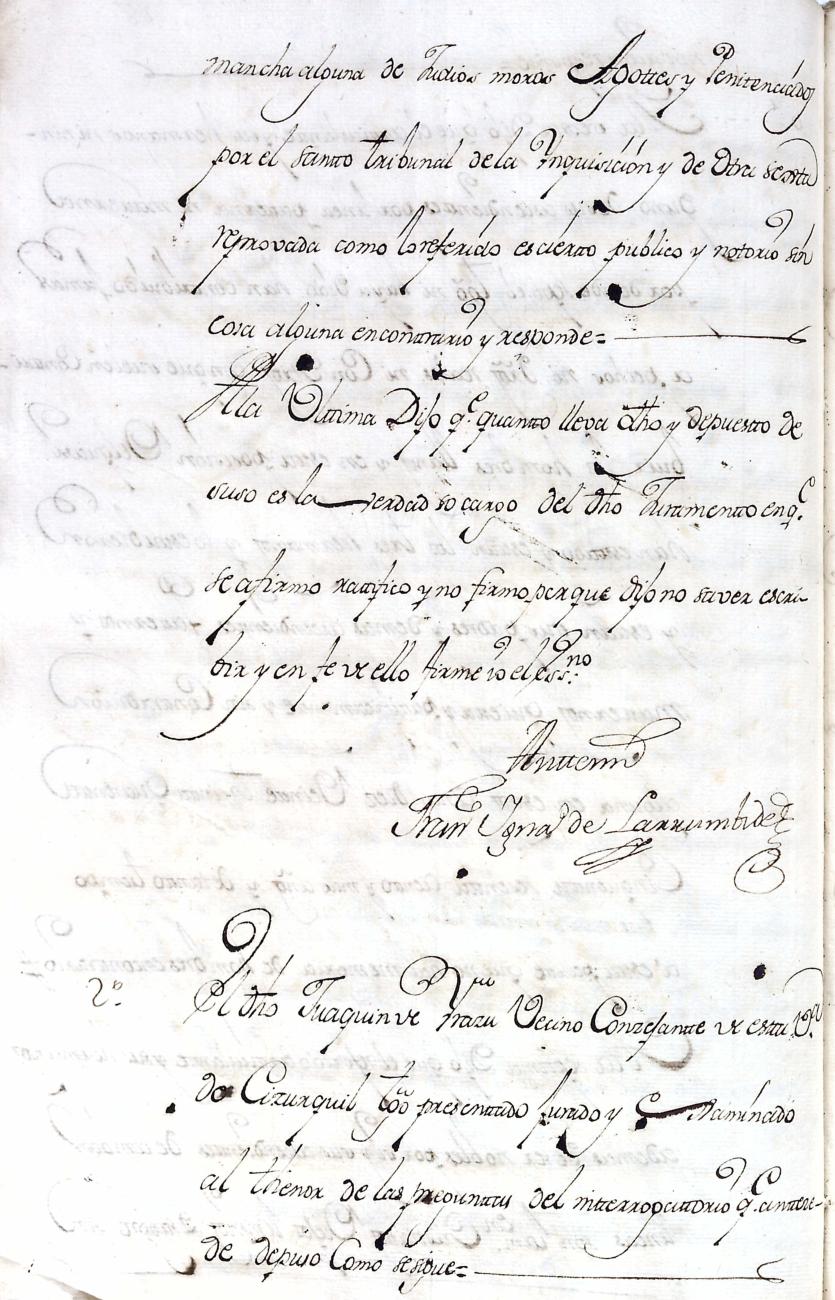 mancha alguna de Judios moros Agottes y Penitenciados
por el santto tribunal de la Ynquisición y de Otra sectta
reprovada como lo referido es ciertto publico y nottorio sin
cosa alguna en conttrario y responde=
A la Ulttima Dijo q.e quantto lleva dho y depuestto de
suso es la verdad so cargo del dho Juramentto en q.e
se afirmo rattifico y no firmo porque dijo no saver escri-
bir y en fe de ello firme yo el ess.no
Anttemi
Fran.co Ign.a de Larrumbide
2.o El dho Juaquin de Yrazu Vecino Conzejantte de estta V.a
de Cizurquil tgo presenttado jurado y Examinado
al thenor de las pregunttas del intterrogattorio q.e antteze-
de depuso Como se sigue=